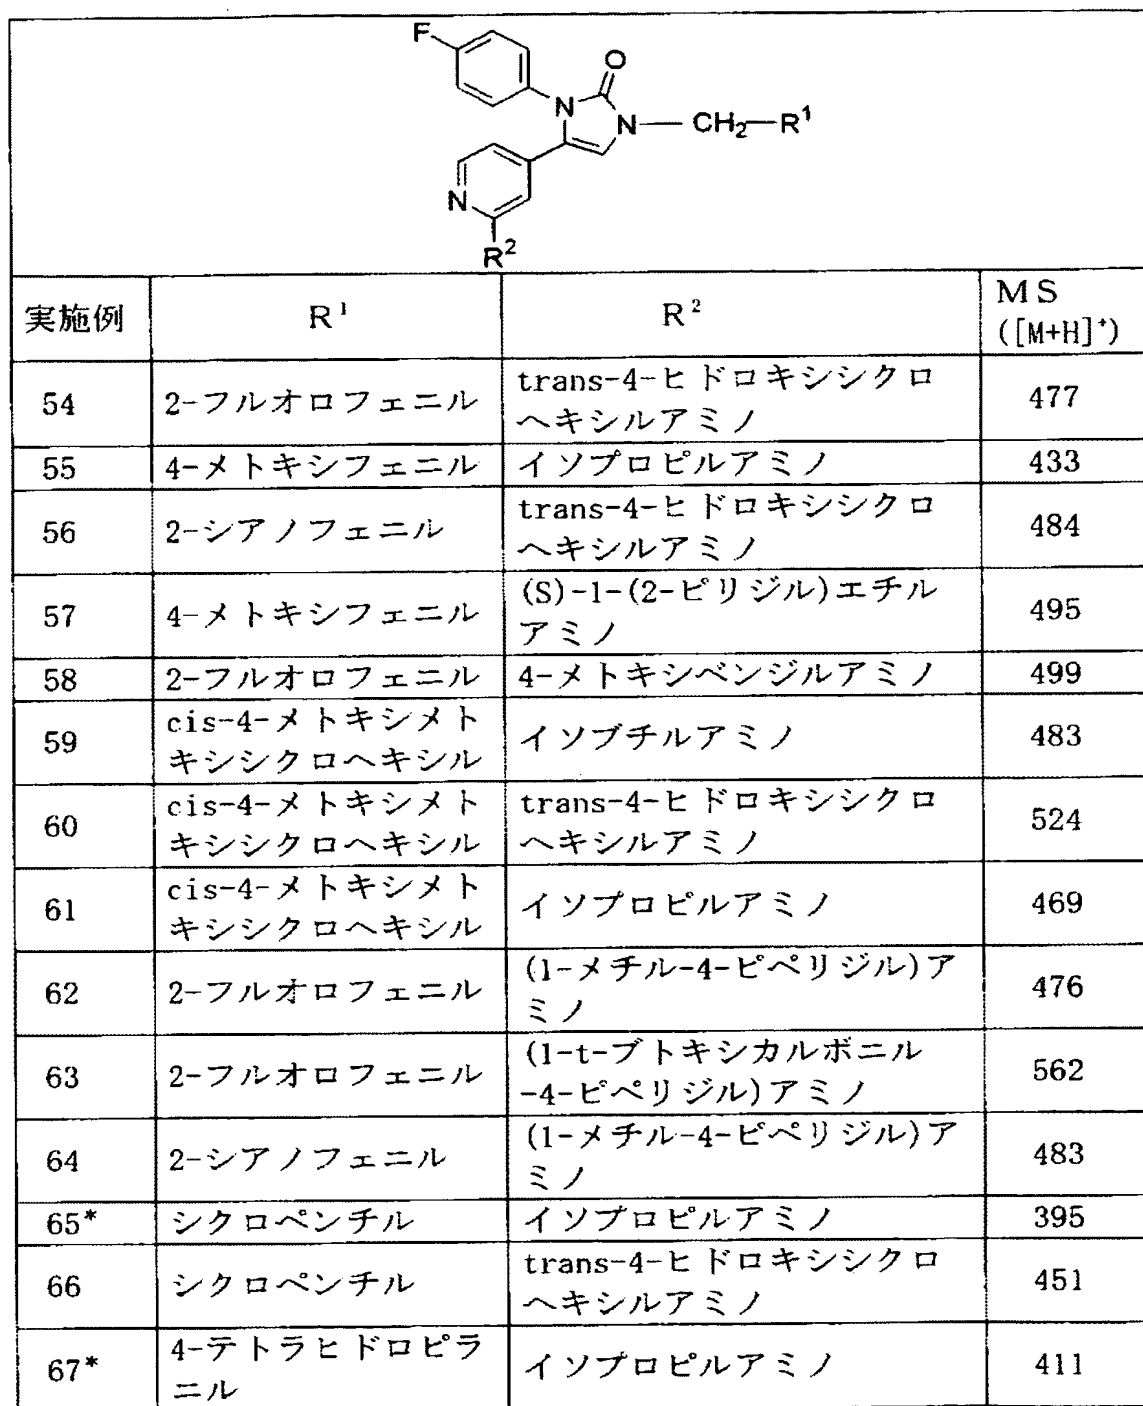 F
O
N
N
CH₂
R¹
N
R²
実施例
R¹
R²
MS
([M+H]⁺)
54
2-フルオロフェニル
trans-4-ヒドロキシシクロ
ヘキシルアミノ
477
55
4-メトキシフェニル
イソプロピルアミノ
433
56
2-シアノフェニル
trans-4-ヒドロキシシクロ
ヘキシルアミノ
484
57
4-メトキシフェニル
(S)-1-(2-ピリジル)エチル
アミノ
495
58
2-フルオロフェニル
4-メトキシベンジルアミノ
499
59
cis-4-メトキシメト
キシシクロヘキシル
イソブチルアミノ
483
60
cis-4-メトキシメト
キシシクロヘキシル
trans-4-ヒドロキシシクロ
ヘキシルアミノ
524
61
cis-4-メトキシメト
キシシクロヘキシル
イソプロピルアミノ
469
62
2-フルオロフェニル
(1-メチル-4-ピペリジル)ア
ミノ
476
63
2-フルオロフェニル
(1-t-ブトキシカルボニル
-4-ピペリジル)アミノ
562
64
2-シアノフェニル
(1-メチル-4-ピペリジル)ア
ミノ
483
65*
シクロペンチル
イソプロピルアミノ
395
66
シクロペンチル
trans-4-ヒドロキシシクロ
ヘキシルアミノ
451
67*
4-テトラヒドロピラ
ニル
イソプロピルアミノ
411